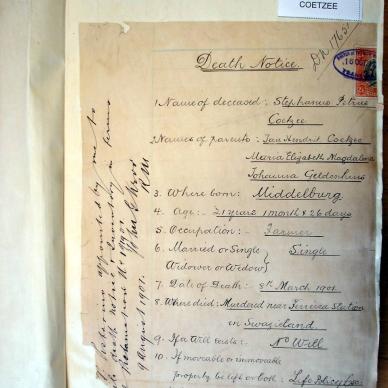 COETZEE
Death Notice.
1. Name of deceased: Stephanus Petrus
Coetzee
2. Names of parents: Jan Hendrik Coetzee
Maria Elizabeth Magdalena
Johanna Geldenhuis
3. Where born: Middelburg
4. Age:- 21 years 1 month & 26 days
5. Occupation:- Farmer
6. Married or Single } Single
Widower or Widow }
7. Date of Death: 8th March 1901
8. Where died: Murdered near Station
in Swazieland
9. If a Will exists: No Will
10. If moveable or immoveable
property be left or both: Life Policy
appointed by me to
in terms
of Proclamation
RM
9 August 1901.